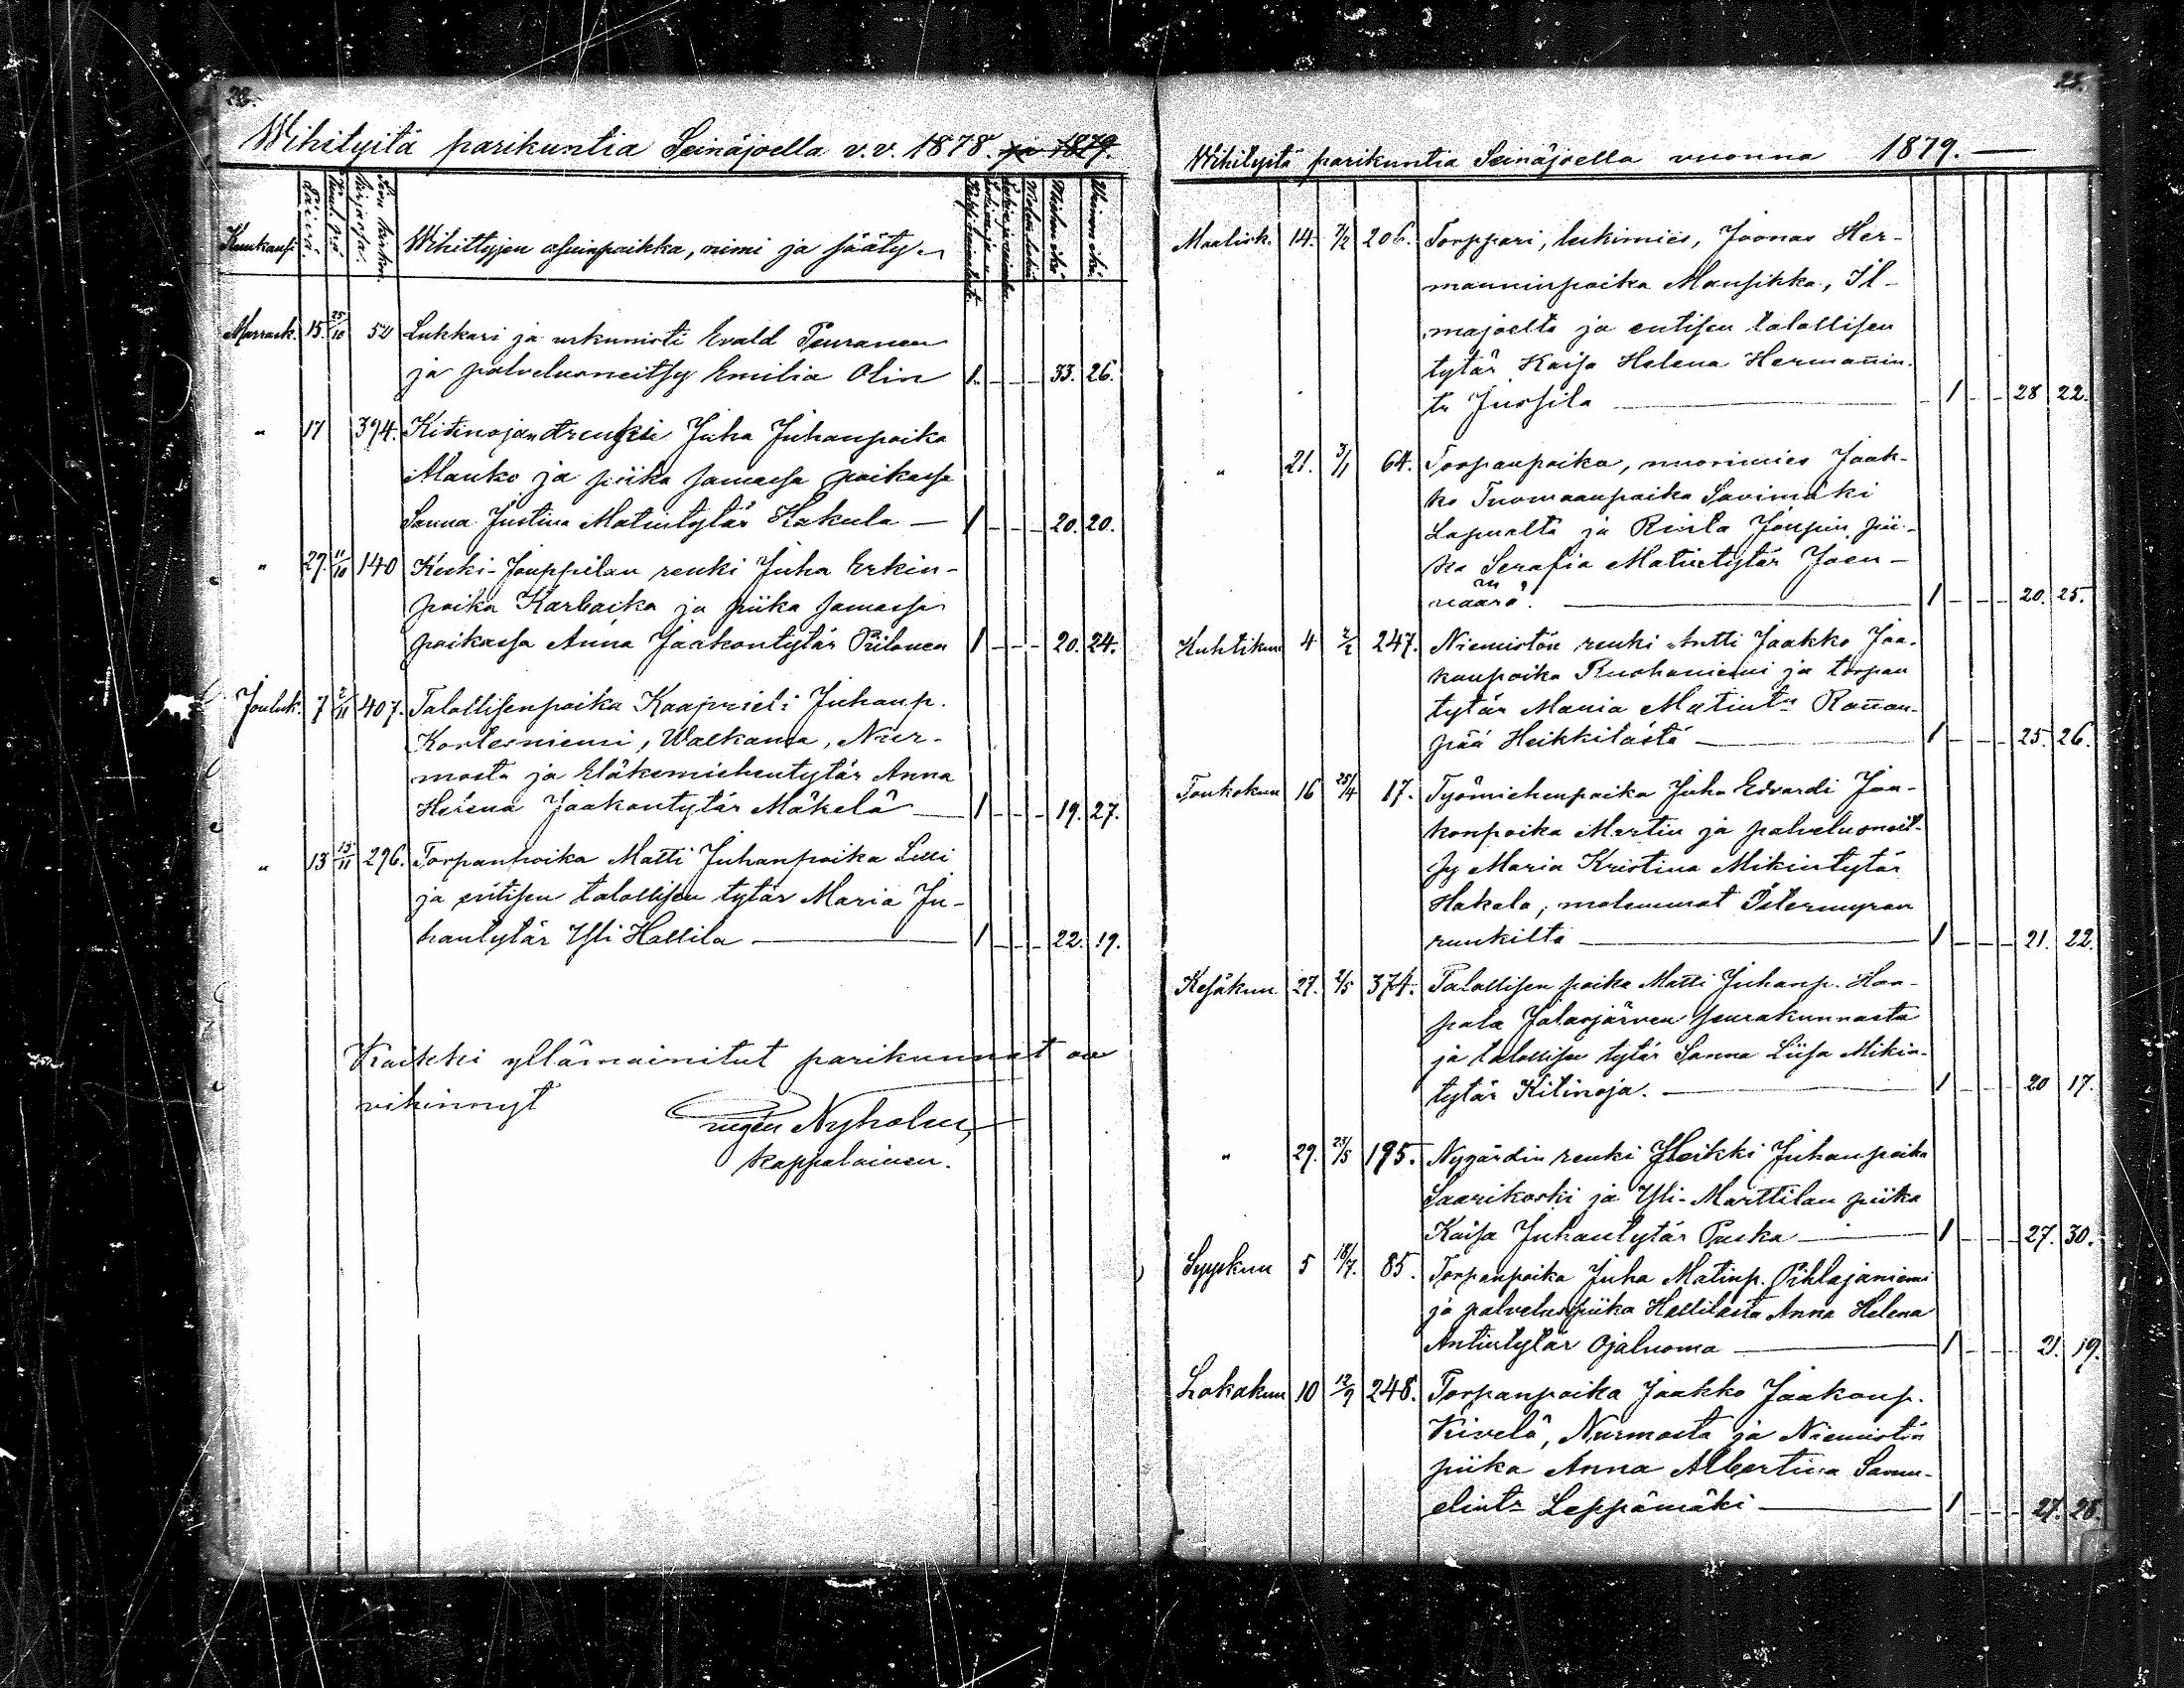 22.
Wihityitä parikuntia Seinäjoella v.v. 1878. ja 1879.
Kuukausi Päivä Wihittyjen asuinpaikka, nimi ja sääty. Miehen ikä Waimon ikä
Marrask. 15. 25/10 52 Lukkari ja urkunisti Evald Teuranen
ja palvelusneitsy Emilia Olin 1. - - - 33. 26.
" 17 394. Kitinojan renki Juha Juhanpoika
Manko ja piika samassa paikassa
Sanna Justina Matintytär Kakula — 1 - - - 20. 20.
" 29. 11/10 140 Keski-Jouppilan renki Juha Erkin-
poika Karbacka ja piika samassa
paikassa Anna Jaakontytär Piilonen 1 - - - 20. 24.
Jouluk. 7 2/11 407. Talollisenpoika Kaaprieli Juhanp.
Kortesniemi, Walkama, Nur-
mosta ja Eläkemiehentytär Anna
Helena Jaakontytär Mäkelä — 1 - - - 19. 27.
" 13 15/11 296. Torpanpoika Matti Juhanpoika Lilli
ja entisen talollisen tytär Maria Ju-
hantytär Yli Hallila — 1 - - - 22. 19.
Kaikki yllämainitut parikunnat on
vihinnyt
Nyholm,
kappalainen.
23.
Wihityitä parikuntia Seinäjoella vuonna 1879. —
Maalisk. 14. 7/2 206. Torppari, leskimies, Joonas Her-
manninpoika Mansikka, Il-
majoelta ja entisen talollisen
tytär Kaisa Helena Hermannin
tr Jussila — - 1 - - 28 22.
" 21. 3/1 64. Torpanpoika, nuorimies Jaak-
ko Tuomaanpoika Savimäki
Lapualta ja Rinta Joupin pii-
ka Serafia Matintytär Joen-
määrä. — 1 - - - 20. 25.
Huhtikuu 4 2/2 247. Niemistön renki Antti Jaakko Jaa-
kunpoika Ruohoniemi ja torpan
tytär Maria Matintr Rannan-
pää Heikkilästä — 1 - - - 25. 26.
Toukokuu 16 25/4 17. Työmiehenpoika Juha Edvardi Jaa-
konpoika Martin ja palvelusneit-
sy Maria Kristina Mikintytär
Hakala, molemmat Östermyran
ruukilta — 1 - - - 21. 22.
Kesäkuu. 27. 2/5 374. Talollisen poika Matti Juhanp. Haa-
pala Jalasjärven seurakunnasta
ja talollisen tytär Sanna Liisa Mikin-
tytär Kitinoja. — 1 - - - 20 17.
" 29. 23/5 195. Nygårdin renki Heikki Juhanpoika
Saarikoski ja Yli-Marttilan piika
Kaisa Juhantytär Puska — 1 - - - 27. 30.
Syyskuu 5 18/7. 85. Torpanpoika Juha Matinp. Pihlajaniemi
ja palveluspiika Hallilasta Anna Helena
Antintytär Ojaluoma — 1 - - - 21. 19.
Lokakuu 10 12/9 248. Torpanpoika Jaakko Jaakonp.
Kivelä, Nurmosta ja Niemistön
piika Anna Albertina Samu-
elintr Leppämäki — 1 - - - 27. 28.